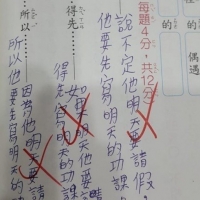 偶遇
的
的
每題4分，共12分
說不定他明天要請假，
他要先寫明天的功課
得先
如果明天他要請
得先寫明天的功課
所以
因為他明天要請
所以他要先寫明天的